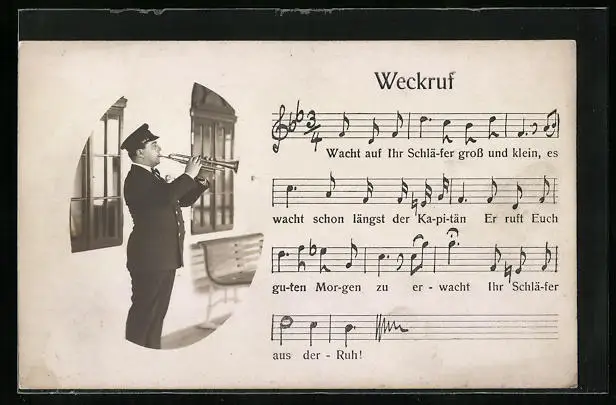 Weckruf
3/4
Wacht auf Ihr Schlä-fer groß und klein, es
wacht schon längst der Ka-pi-tän Er ruft Euch
gu-ten Mor-gen zu er-wacht Ihr Schlä-fer
aus der-Ruh!